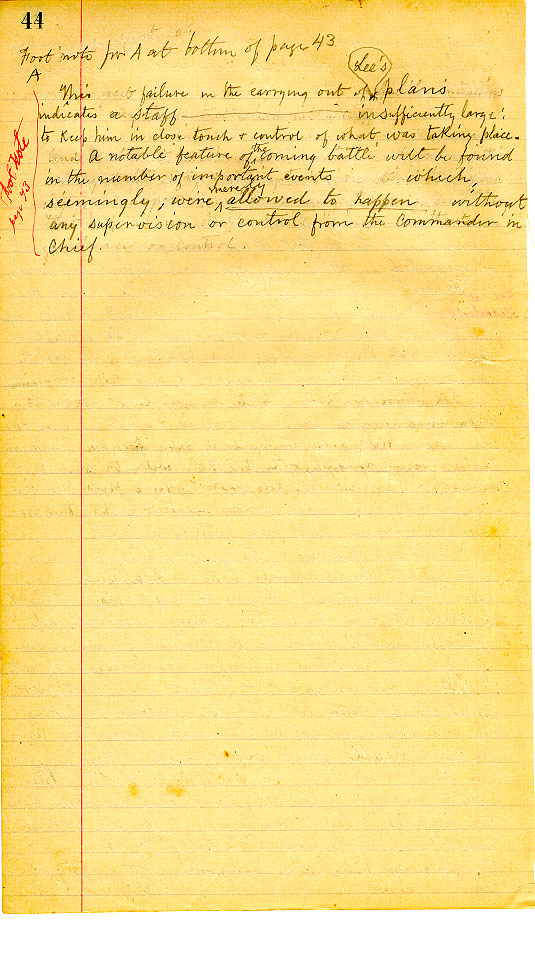 44
Foot note for A at bottom of page 43
A
Lee's
This failure in the carrying out of plans
indicates a staff insufficiently large:
to keep him in close touch & control of what was taking place.
A notable feature of the coming battle will be found
in the number of important events which,
seemingly, were merely allowed to happen without
any supervision or control from the Commander in
Chief.
Foot Note
page 43